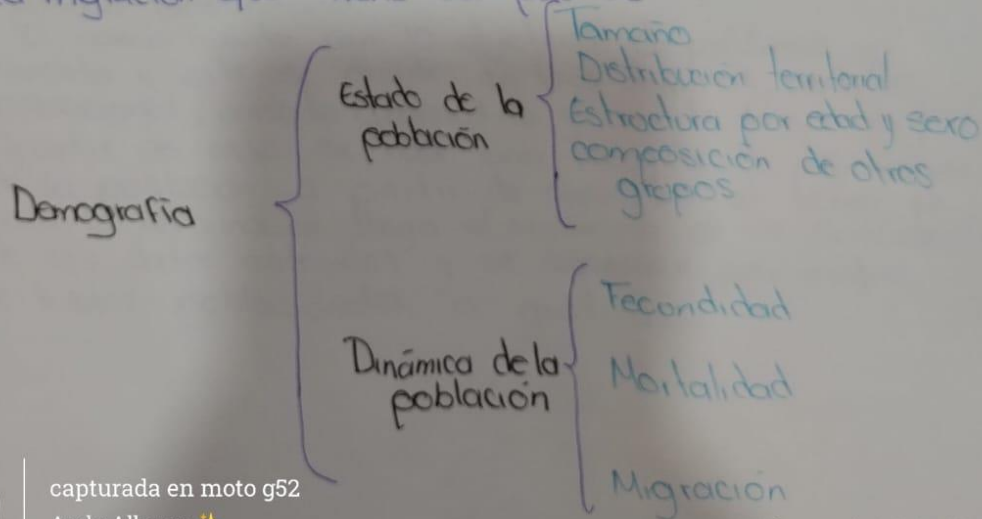 Demografía
Estado de la
población
Tamaño
Distribución territorial
Estructura por edad y sexo
composición de otros
grupos
Dinámica de la
población
Fecundidad
Mortalidad
Migración
capturada en moto g52